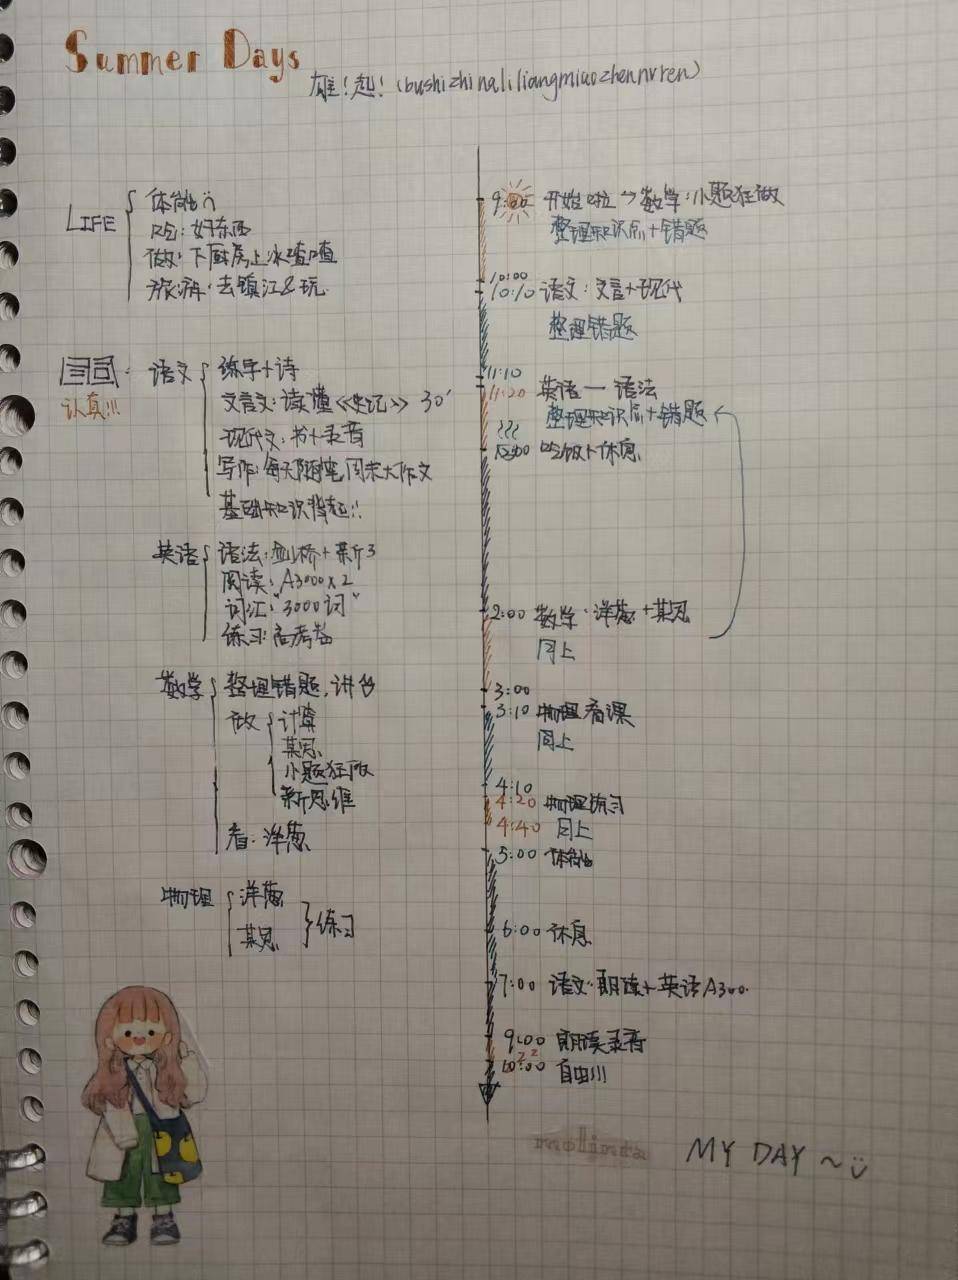 Summer Days
雄!起!(bushizhinaliliangmiaozhennvren)
LIFE
体能
吃:好东西
做:下厨房上冰喳喳
旅游:去镇江&玩
认真!!!
语文
练字+诗
文言文:读懂《史记》30'
现代文:书+录音
写作:每天随笔,周末大作文
基础知识背起!!
英语
语法:剑桥+新3
阅读:A3000x2
词汇:"3000词"
练习:高考卷
数学
整理错题,讲台
做
计算
某思
小题狂做
新思维
看:洋葱
物理
洋葱
某思
练习
9:00 开始啦→数学:小题狂做
整理知识点+错题
10:00
10:10 语文:文言+现代
整理错题
11:10
11:20 英语—语法
整理知识点+错题
吃饭+休息
2:00 数学·洋葱+某思
同上
3:00
3:10 物理看课
同上
4:10
4:20 物理练习
4:40 同上
5:00 体能
6:00 休息
7:00 语文·朗读+英语A300
9:00 朗读录音
zz
10:00 自由!!!
molinta
MY DAY ~